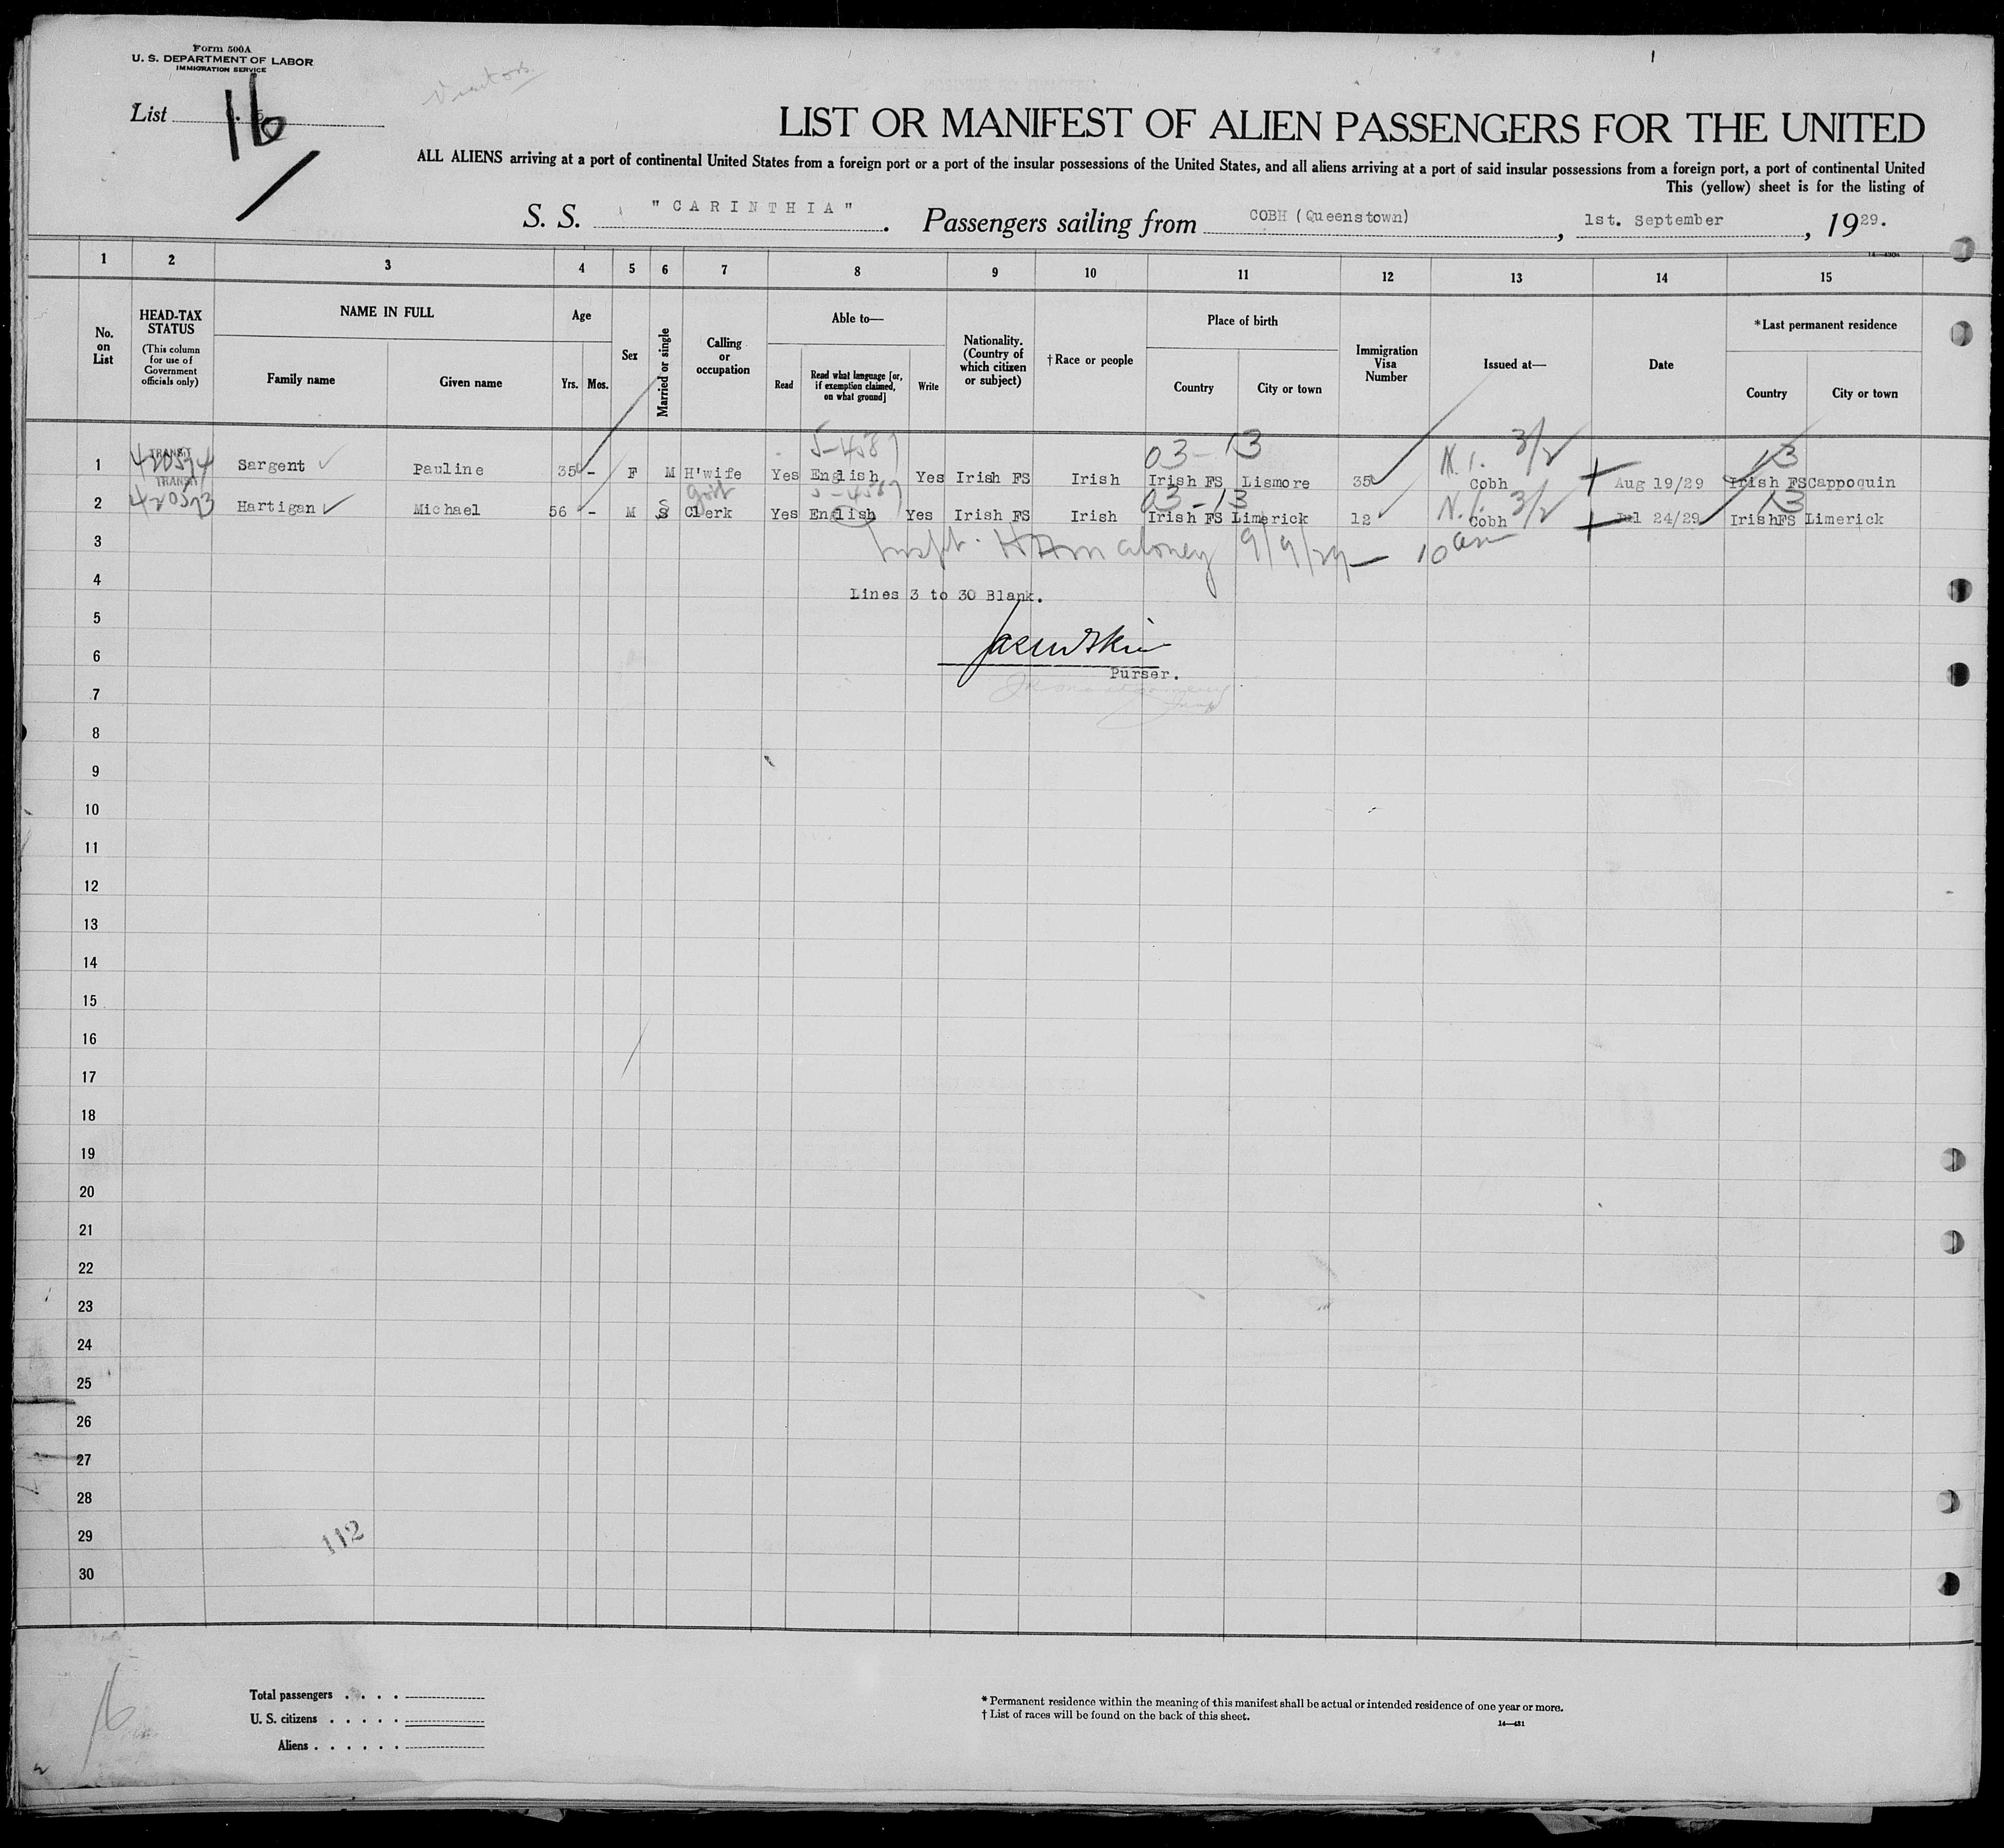 Form 500A
U. S. DEPARTMENT OF LABOR
IMMIGRATION SERVICE
Visitors.
List 16
LIST OR MANIFEST OF ALIEN PASSENGERS FOR THE UNITED
ALL ALIENS arriving at a port of continental United States from a foreign port or a port of the insular possessions of the United States, and all aliens arriving at a port of said insular possessions from a foreign port, a port of continental United
This (yellow) sheet is for the listing of
S. S. "CARINTHIA". Passengers sailing from COBH (Queenstown), 1st. September, 1929.
1 2 3 4 5 6 7 8 9 10 11 12 13 14 15
No. on List
HEAD-TAX STATUS
(This column for use of Government officials only)
NAME IN FULL
Family name
Given name
Age
Yrs. Mos.
Sex
Married or single
Calling or occupation
Able to—
Read
Read what language [or, if exemption claimed, on what ground]
Write
Nationality. (Country of which citizen or subject)
† Race or people
Place of birth
Country
City or town
Immigration Visa Number
Issued at—
Date
*Last permanent residence
Country
City or town
5-4587 03-13 N.I. 3/2 13
1 TRANSIT 420574 Sargent Pauline 35 - F M H'wife Yes English Yes Irish FS Irish Irish FS Lismore 35 Cobh Aug 19/29 Irish FS Cappoquin
Govt 5-4587 03-13 N.I. 3/2 13
2 TRANSIT 420573 Hartigan Michael 56 - M S Clerk Yes English Yes Irish FS Irish Irish FS Limerick 12 Cobh Jul 24/29 Irish FS Limerick
3 Inspt. Maloney 9/9/29 — 10 am
4 Lines 3 to 30 Blank.
5
6
Purser.
7
8
9
10
11
12
13
14
15
16
17
18
19
20
21
22
23
24
25
26
27
28
29 112
30
16
Total passengers . . . .
U. S. citizens . . . . .
Aliens . . . . . .
* Permanent residence within the meaning of this manifest shall be actual or intended residence of one year or more.
† List of races will be found on the back of this sheet.
14—431